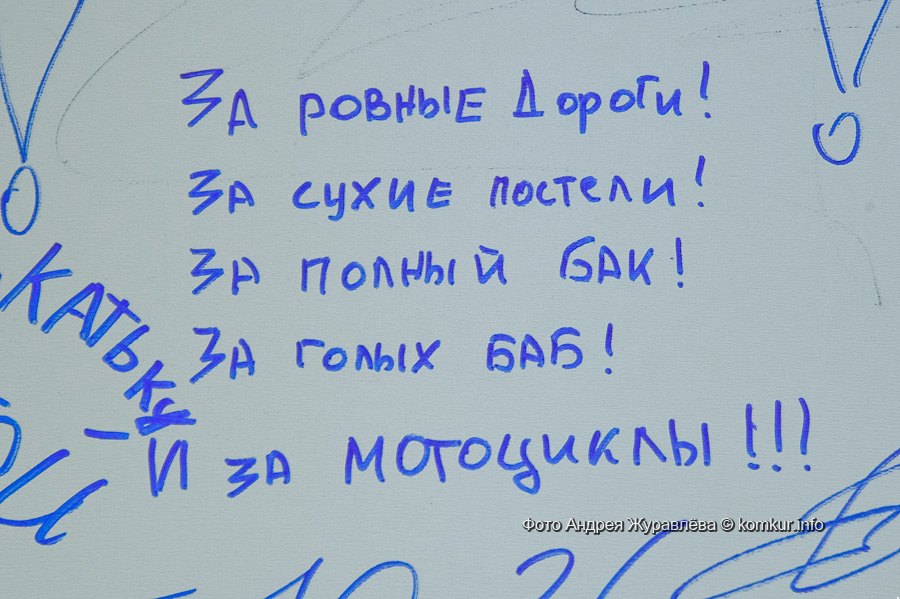 За ровные дороги!
За сухие постели!
За полный бак!
За голых баб!
И за мотоциклы!!!
Фото Андрея Журавлёва © komkur.info